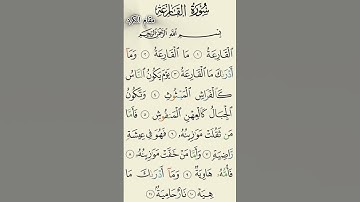 سُورَةُ القَارِعَةِ
مقام الكرد
بِسْمِ اللَّهِ الرَّحْمَنِ الرَّحِيمِ
الْقَارِعَةُ ١ مَا الْقَارِعَةُ ٢ وَمَا
أَدْرَىٰكَ مَا الْقَارِعَةُ ٣ يَوْمَ يَكُونُ النَّاسُ
كَالْفَرَاشِ الْمَبْثُوثِ ٤ وَتَكُونُ
الْجِبَالُ كَالْعِهْنِ الْمَنفُوشِ ٥ فَأَمَّا
مَن ثَقُلَتْ مَوَٰزِينُهُ ٦ فَهُوَ فِي عِيشَةٍ
رَّاضِيَةٍ ٧ وَأَمَّا مَنْ خَفَّتْ مَوَٰزِينُهُ ٨
فَأُمُّهُ هَاوِيَةٌ ٩ وَمَا أَدْرَىٰكَ مَا
هِيَهْ ١٠ نَارٌ حَامِيَةٌ ١١